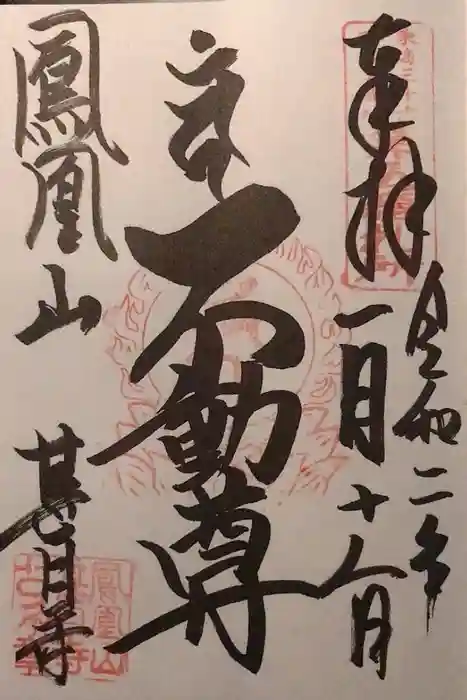 奉拝
令和二年
一月十八日
不動尊
鳳凰山
甚目寺
鳳凰山